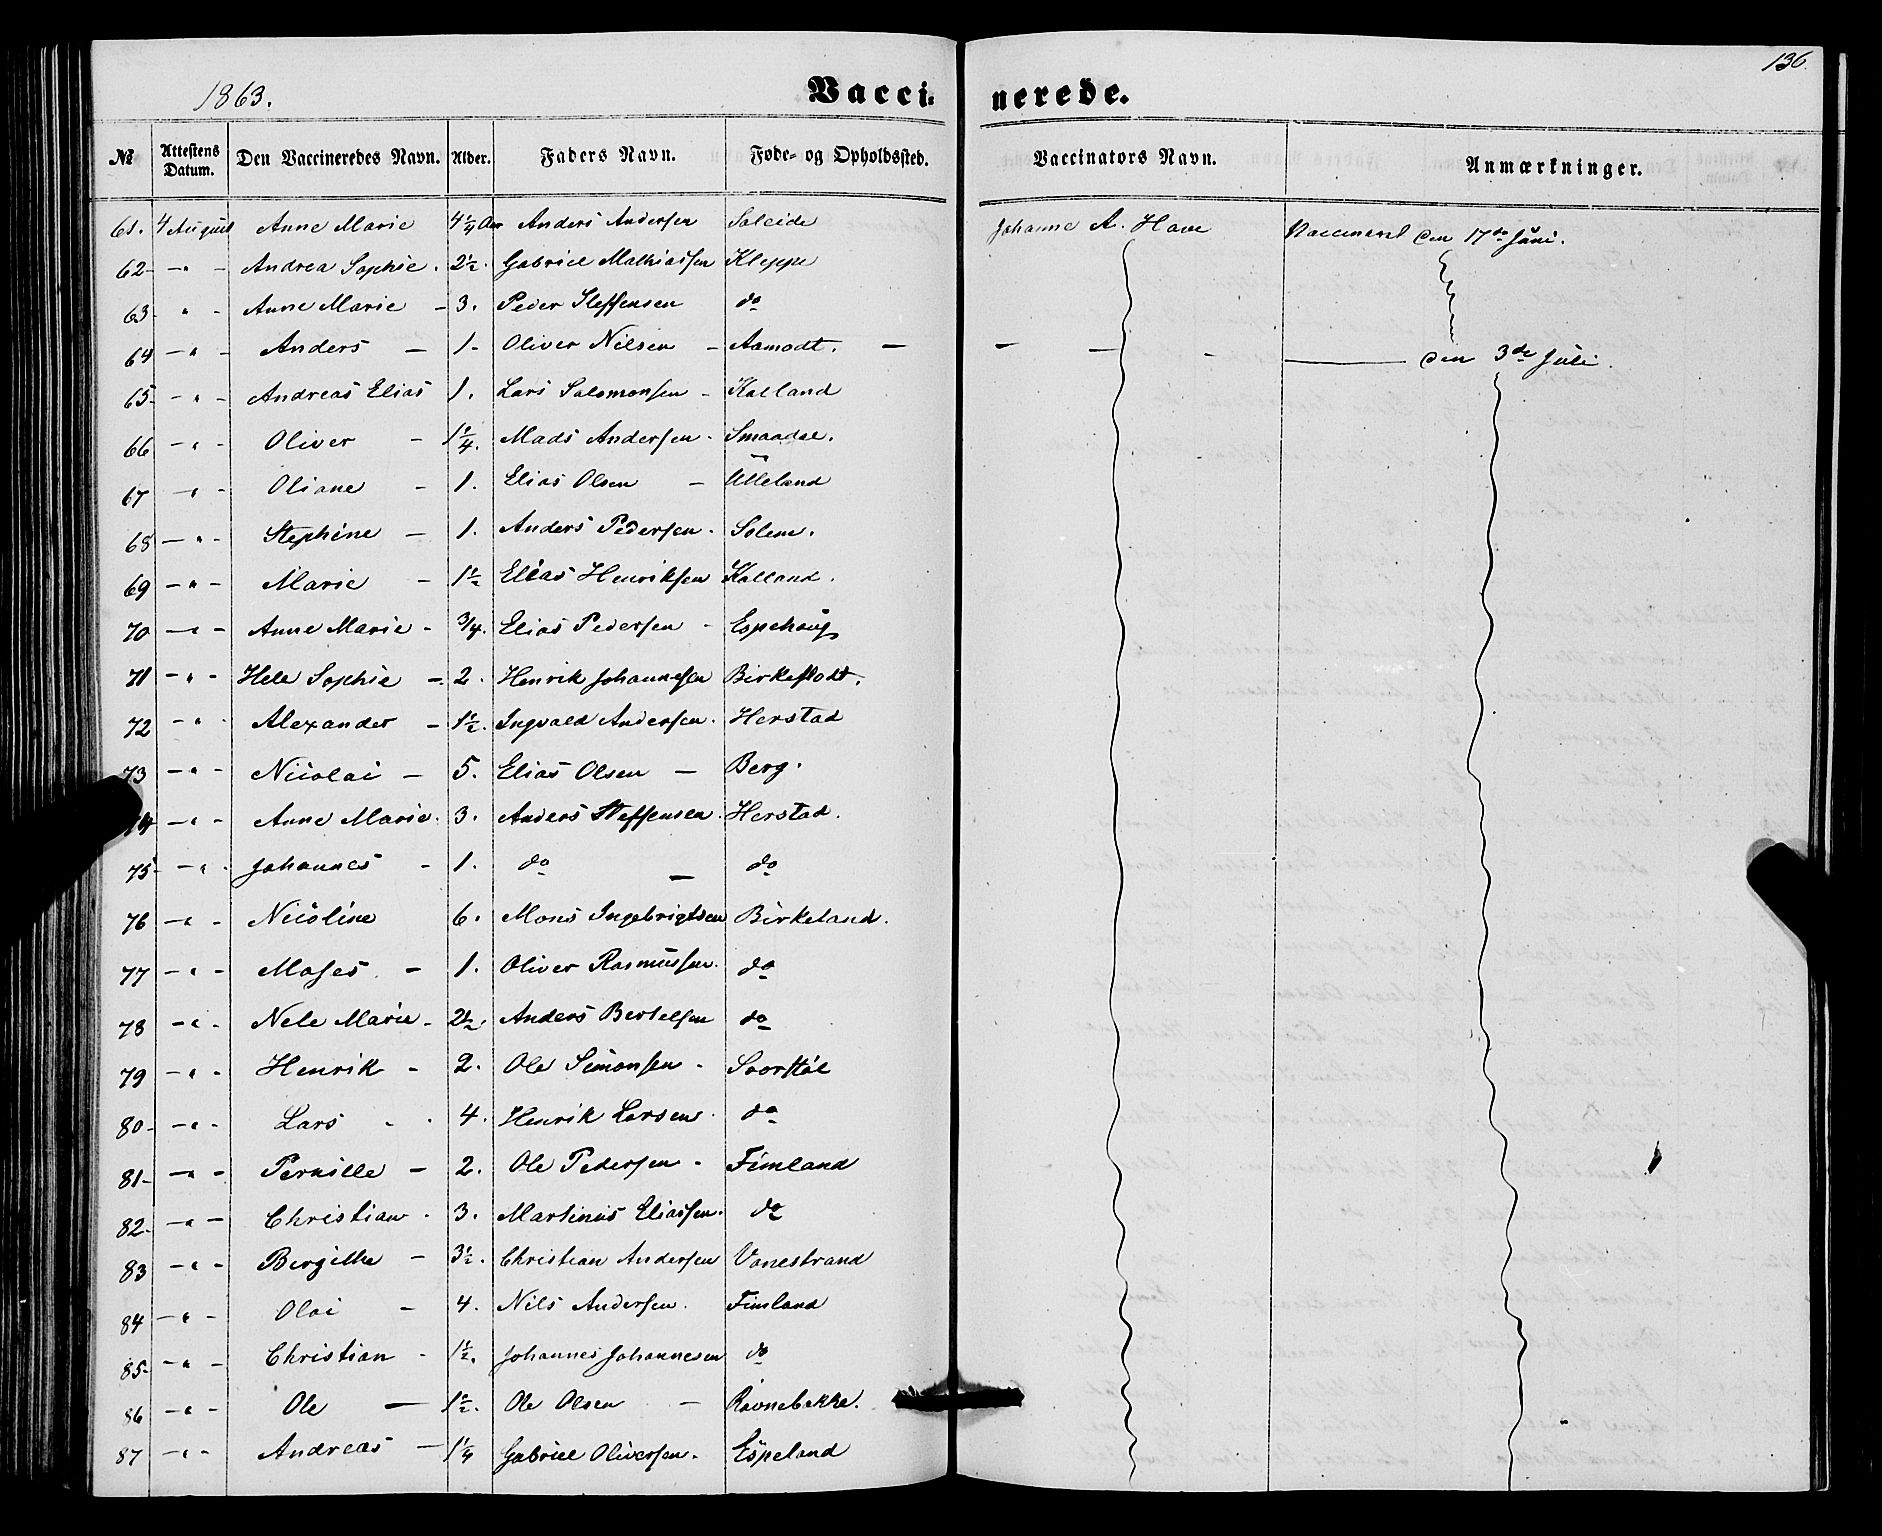 136
1863.
Vacci= nerede.
№ Attestens Datum. Den Vaccineredes Navn. Alder. Faders Navn. Føde- og Opholdssted. Vaccinators Navn. Anmærkninger.
61. 4 August Anne Marie 4¼ Aar Anders Andersen Soleide Johanne A. Have Vaccineret den 17de Juni.
62- - " - Andrea Sophie. 2½. Gabriel Mathiassen Kleppe
63- " - Anne Marie - 3. Peder Steffensen do
64 - " - Anders - 1- Oliver Nilsen - Aamodt. - - - - den 3de Juli.
65- - " - Andreas Elias 1. Lars Salomonsen - Kalland
66 - " - Oliver - 1¼. Mads Andersen - Smaadal.
67 - " - Oliane - 1. Elias Olsen - Ulleland
68 - " - Stephine - 1. Anders Pedersen. Solem.
69 - " - Marie - 1½ Elias Henriksen Kalland.
70 - " - Anne Marie - ¾. Elias Pedersen - Espehoug
71 - " - Hele Sophie - 2. Henrik Johannesen Birkestodt.
72 - " - Alexander - 1½. Ingvald Andersen. Herstad
73 - " - Nicolai - 5. Elias Olsen - Berg.
74 - " - Anne Marie. 3. Anders Steffensen. Herstad.
75- - " - Johannes - 1. do - do
76 - " - Nicoline 6. Mons Ingebrigtsen Birkeland.
77 - " - Moses. - 1. Oliver Rasmussen. do
78 - " - Nele Marie - 2½. Anders Bertelsen do
79 - " - Henrik - 2. Ole Simonsen - Svorstøl
80- - " - Lars - - 4. Henrik Larsen. do
81- - " - Pernille - 2. Ole Pedersen - Fimland
82- - " - Christian - 3. Martinus Eliassen. do
83 - " - Bergitha - 3½. Christian Andersen Vanestrand
84 - " - Olai - 4. Nils Andersen. Fimland
85- - " - Christian - 1½. Johannes Johannesen do
86 - " - Ole - 1½. Ole Olsen - Ravnebakke.
87 - " - Andreas - 1¼ Gabriel Oliversen. Espeland